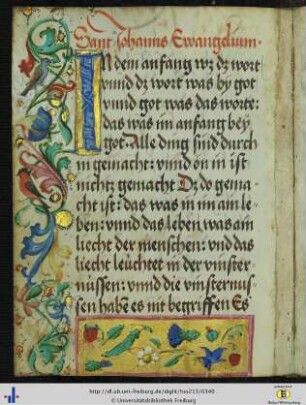 Sant Johanns Ewangelium.
IN dem anfang wz dz wort
vnnd dz wort was by got
vnnd got was das worte:
das was im anfang bey
got. Alle ding sind durch
in gemacht: vnnd on in ist
nichtz gemacht Dz do gema-
cht ist: das was in im am le-
ben: vnnd das leben was ain
liecht der menschen: vnd das
liecht leüchtet in der vinster-
nüssen: vnnd die vinsternus-
sen habē es nit begriffen Es
http://dl.ub.uni-freiburg.de/diglit/hs213/0340
© Universitätsbibliothek Freiburg